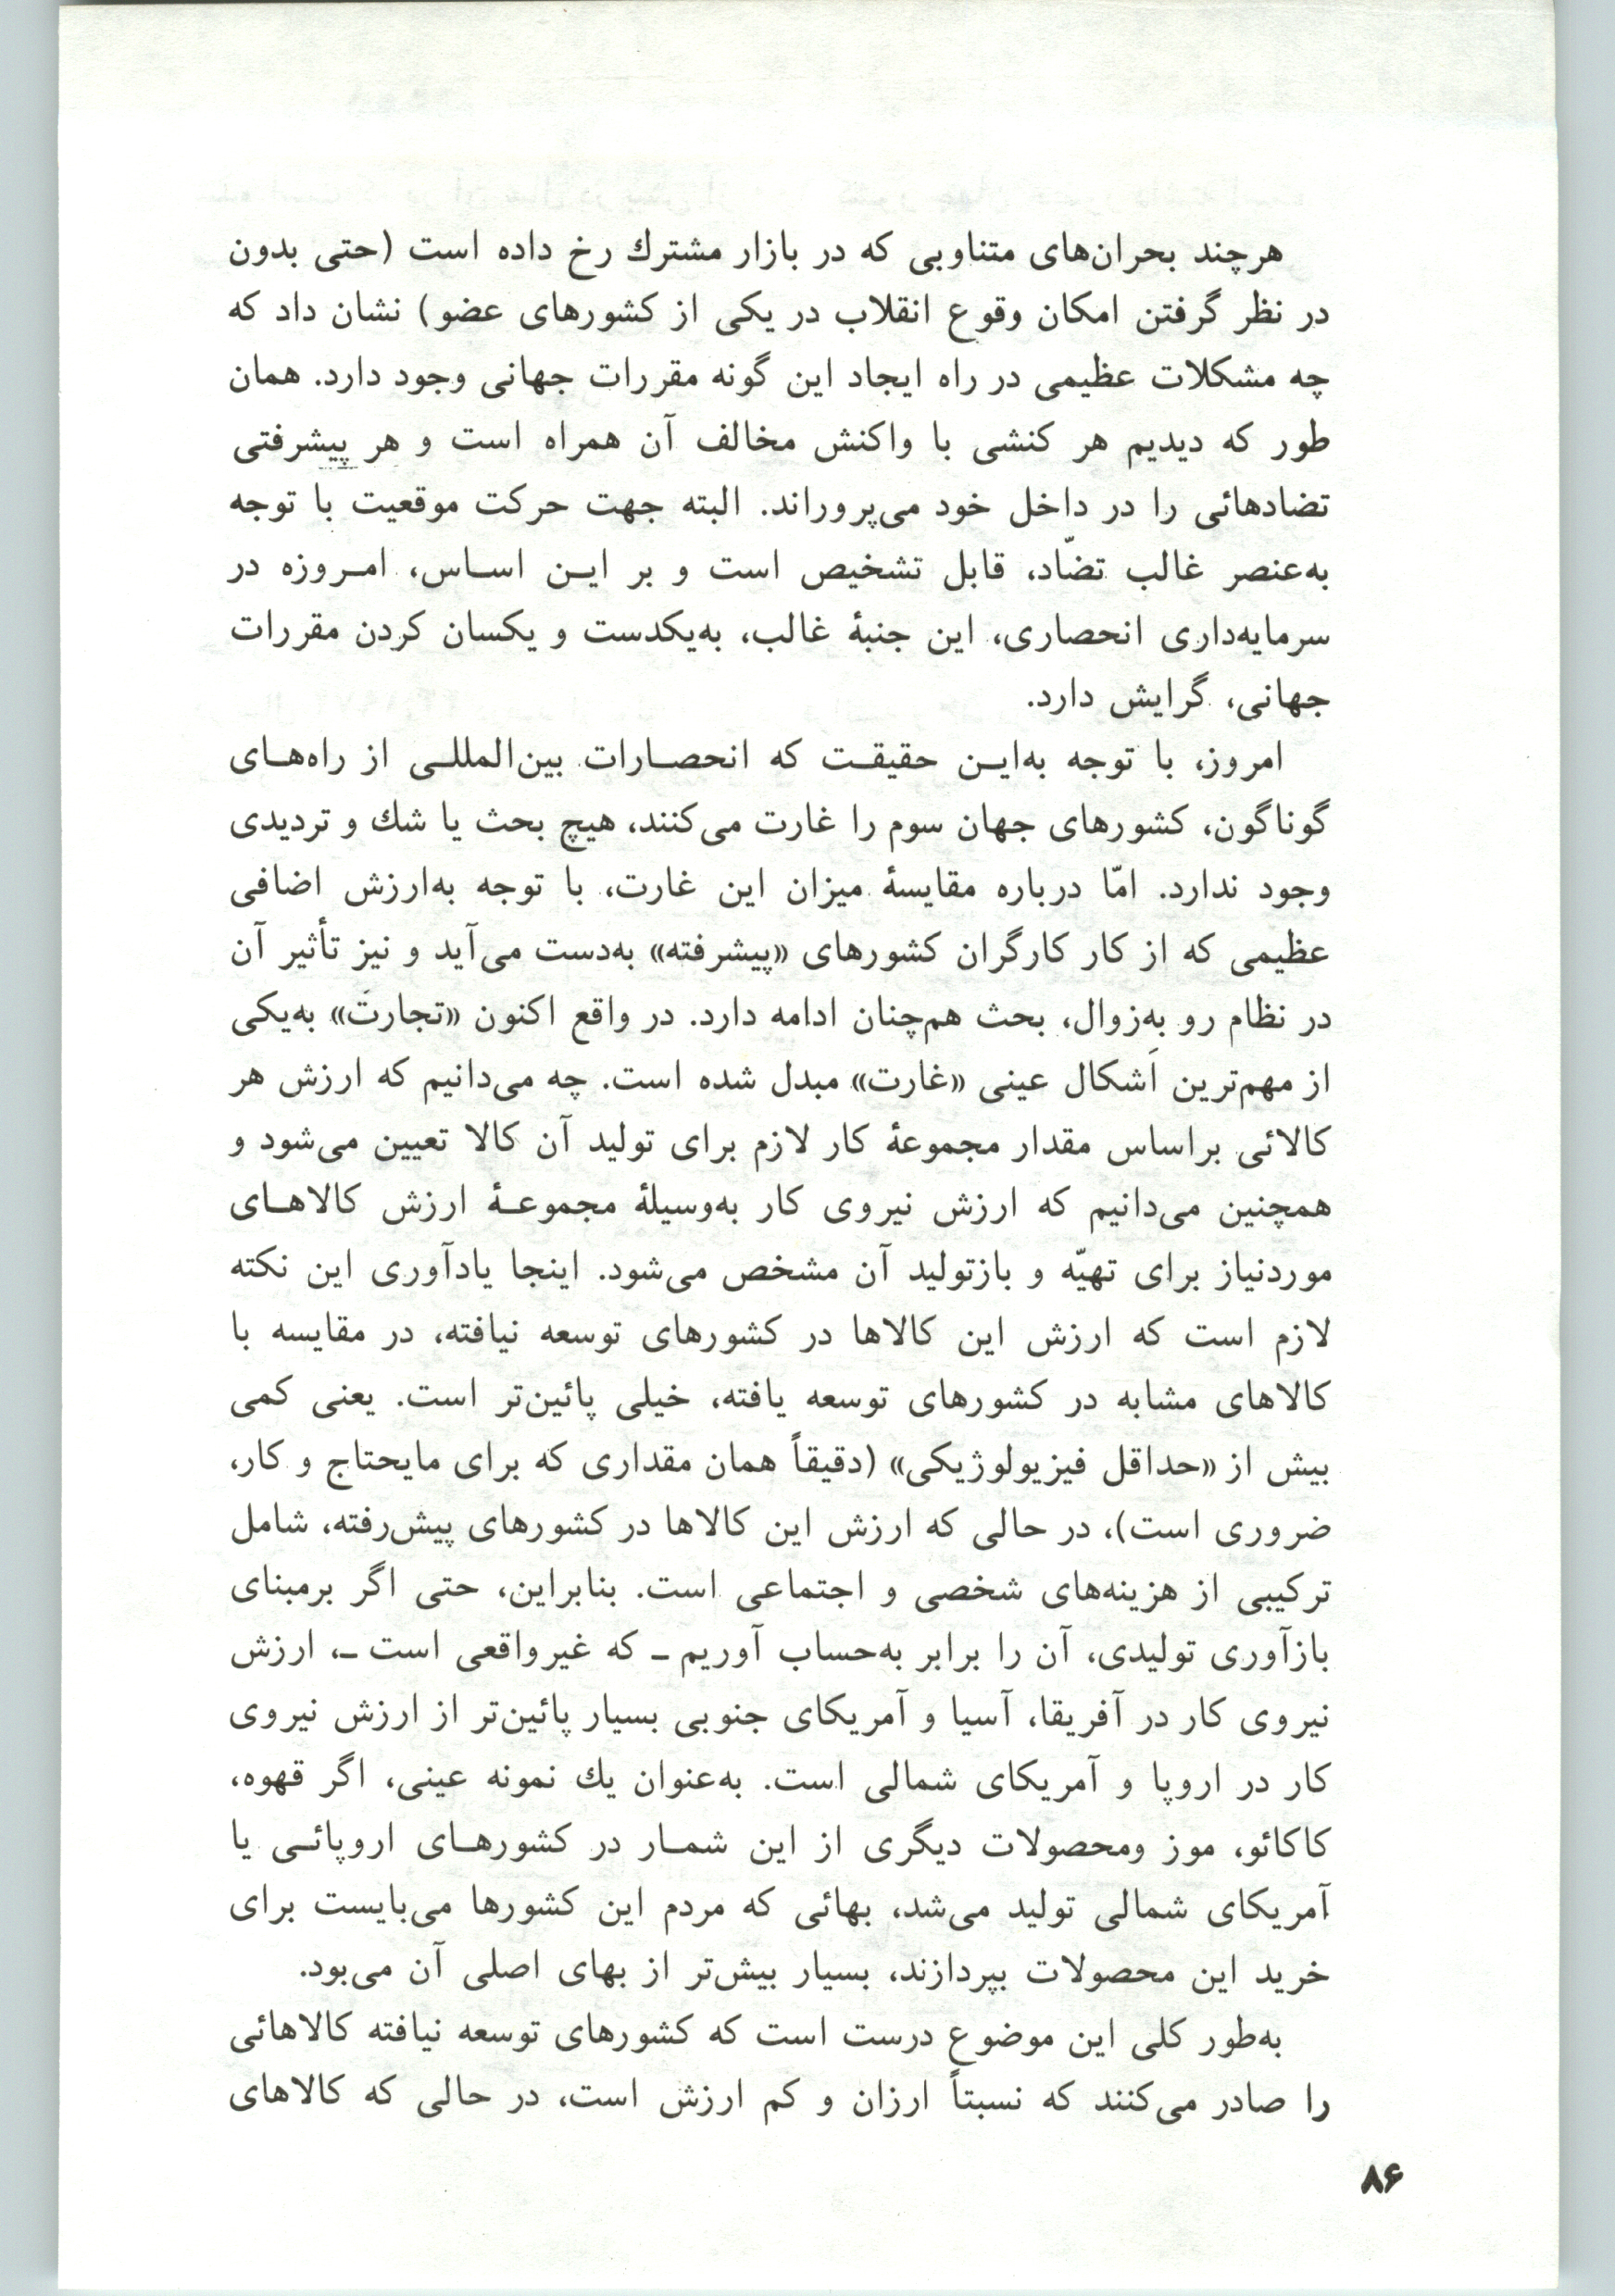 هرچند بحران‌های متناوبی که در بازار مشترك رخ داده است (حتی بدون
در نظر گرفتن امکان وقوع انقلاب در یکی از کشورهای عضو) نشان داد که
چه مشکلات عظیمی در راه ایجاد این گونه مقررات جهانی وجود دارد. همان
طور که دیدیم هر کنشی با واکنش مخالف آن همراه است و هر پیشرفتی
تضادهائی را در داخل خود می‌پروراند. البته جهت حرکت موقعیت با توجه
به‌عنصر غالب تضّاد، قابل تشخیص است و بر ایـن اسـاس، امـروزه در
سرمایه‌داری انحصاری، این جنبهٔ غالب، به‌یکدست و یکسان کردن مقررات
جهانی، گرایش دارد.
امروز، با توجه به‌ایـن حقیقـت که انحصـارات بین‌المللـی از راه‌هـای
گوناگون، کشورهای جهان سوم را غارت می‌کنند، هیچ بحث یا شك و تردیدی
وجود ندارد. امّا درباره مقایسهٔ میزان این غارت، با توجه به‌ارزش اضافی
عظیمی که از کار کارگران کشورهای «پیشرفته» به‌دست می‌آید و نیز تأثیر آن
در نظام رو به‌زوال، بحث هم‌چنان ادامه دارد. در واقع اکنون «تجارت» به‌یکی
از مهم‌ترین اَشکال عینی «غارت» مبدل شده است. چه می‌دانیم که ارزش هر
کالائی براساس مقدار مجموعهٔ کار لازم برای تولید آن کالا تعیین می‌شود و
همچنین می‌دانیم که ارزش نیروی کار به‌وسیلهٔ مجموعـهٔ ارزش کالاهـای
موردنیاز برای تهیّه و بازتولید آن مشخص می‌شود. اینجا یادآوری این نکته
لازم است که ارزش این کالاها در کشورهای توسعه نیافته، در مقایسه با
کالاهای مشابه در کشورهای توسعه یافته، خیلی پائین‌تر است. یعنی کمی
بیش از «حداقل فیزیولوژیکی» (دقیقاً همان مقداری که برای مایحتاج و کار،
ضروری است)، در حالی که ارزش این کالاها در کشورهای پیش‌رفته، شامل
ترکیبی از هزینه‌های شخصی و اجتماعی است. بنابراین، حتی اگر برمبنای
بازآوری تولیدی، آن را برابر به‌حساب آوریم ـ که غیرواقعی است ـ، ارزش
نیروی کار در آفریقا، آسیا و آمریکای جنوبی بسیار پائین‌تر از ارزش نیروی
کار در اروپا و آمریکای شمالی است. به‌عنوان یك نمونه عینی، اگر قهوه،
کاکائو، موز ومحصولات دیگری از این شمـار در کشورهـای اروپائـی یا
آمریکای شمالی تولید می‌شد، بهائی که مردم این کشورها می‌بایست برای
خرید این محصولات بپردازند، بسیار بیش‌تر از بهای اصلی آن می‌بود.
به‌طور کلی این موضوع درست است که کشورهای توسعه نیافته کالاهائی
را صادر می‌کنند که نسبتاً ارزان و کم ارزش است، در حالی که کالاهای
۸۶